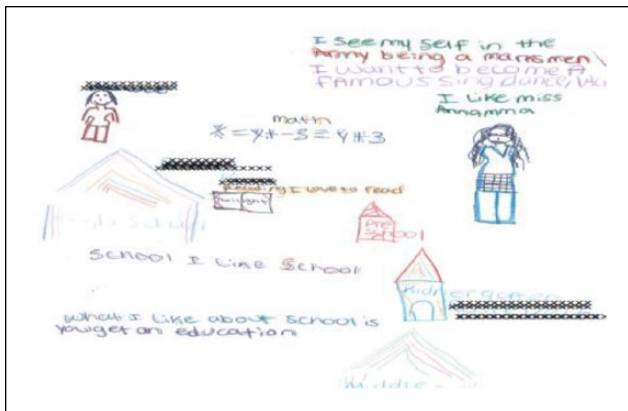 I see my self in the
Army being a marksmen
I want to become A
FAMOUS sing dance
I Like miss
Annamma
math
Reading I love to read
Pre
School
SCHOOL I LIKE School
Kidnergarten
what I Like about school is
you get an education
Middle